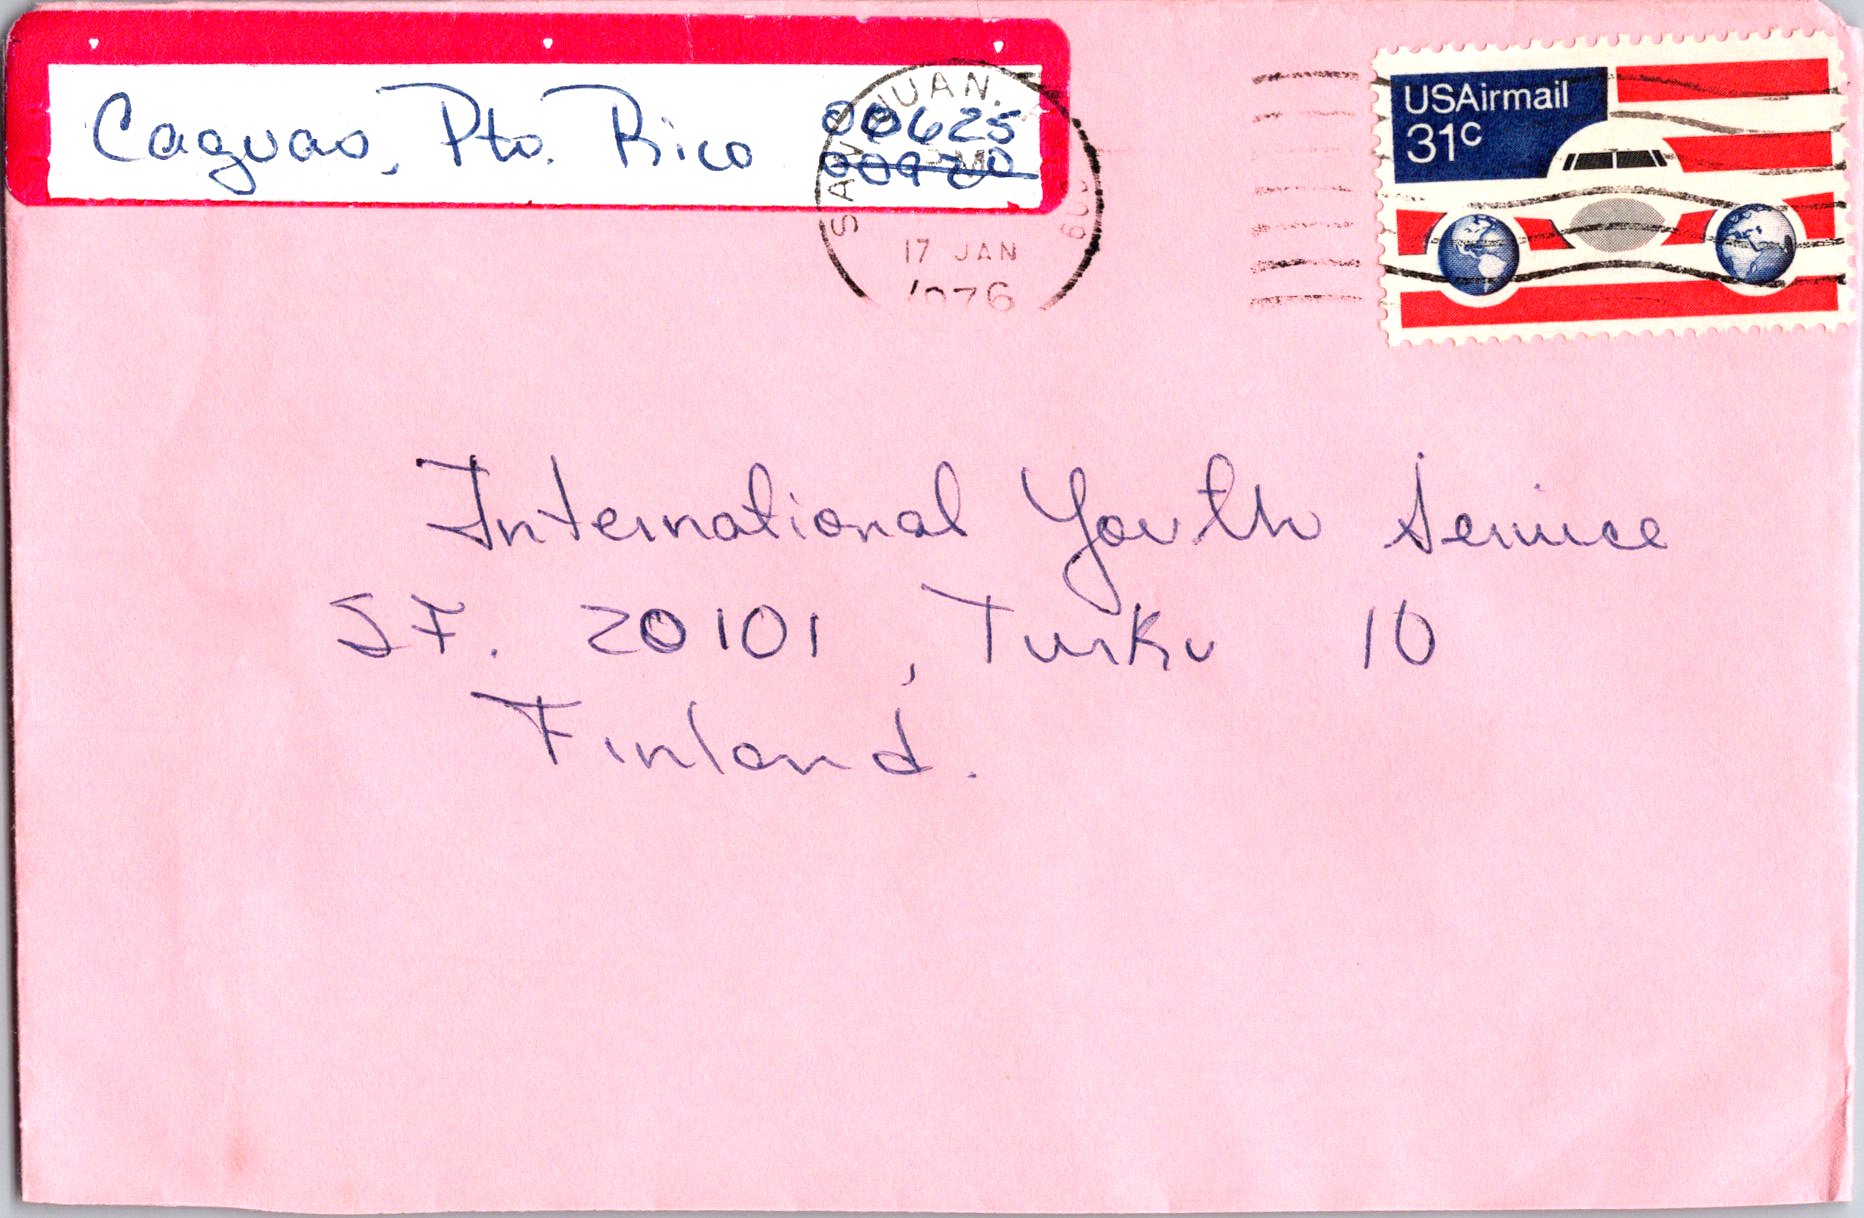 Caguas, Pto. Rico 00625
00920
SAN JUAN,
PM
17 JAN
1976
USAirmail
31c
International Youth Service
SF. 20101, Turku 10
Finland.